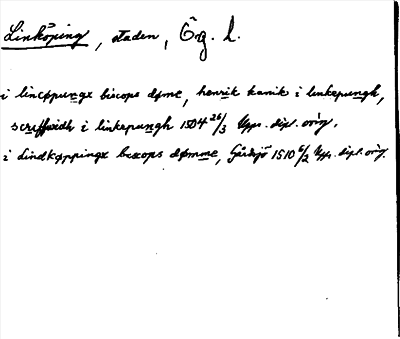 Linköping, staden, Ög. l.
i lincøpungx biscops døme, henrik kanik i linkepungh,
screffwidh i linkepungh 1504 26/3 Upps. dipl. orig.
i Lindkøppingx bescops dømme, Gårdsjö 1510 6/2 Upps. dipl. orig.